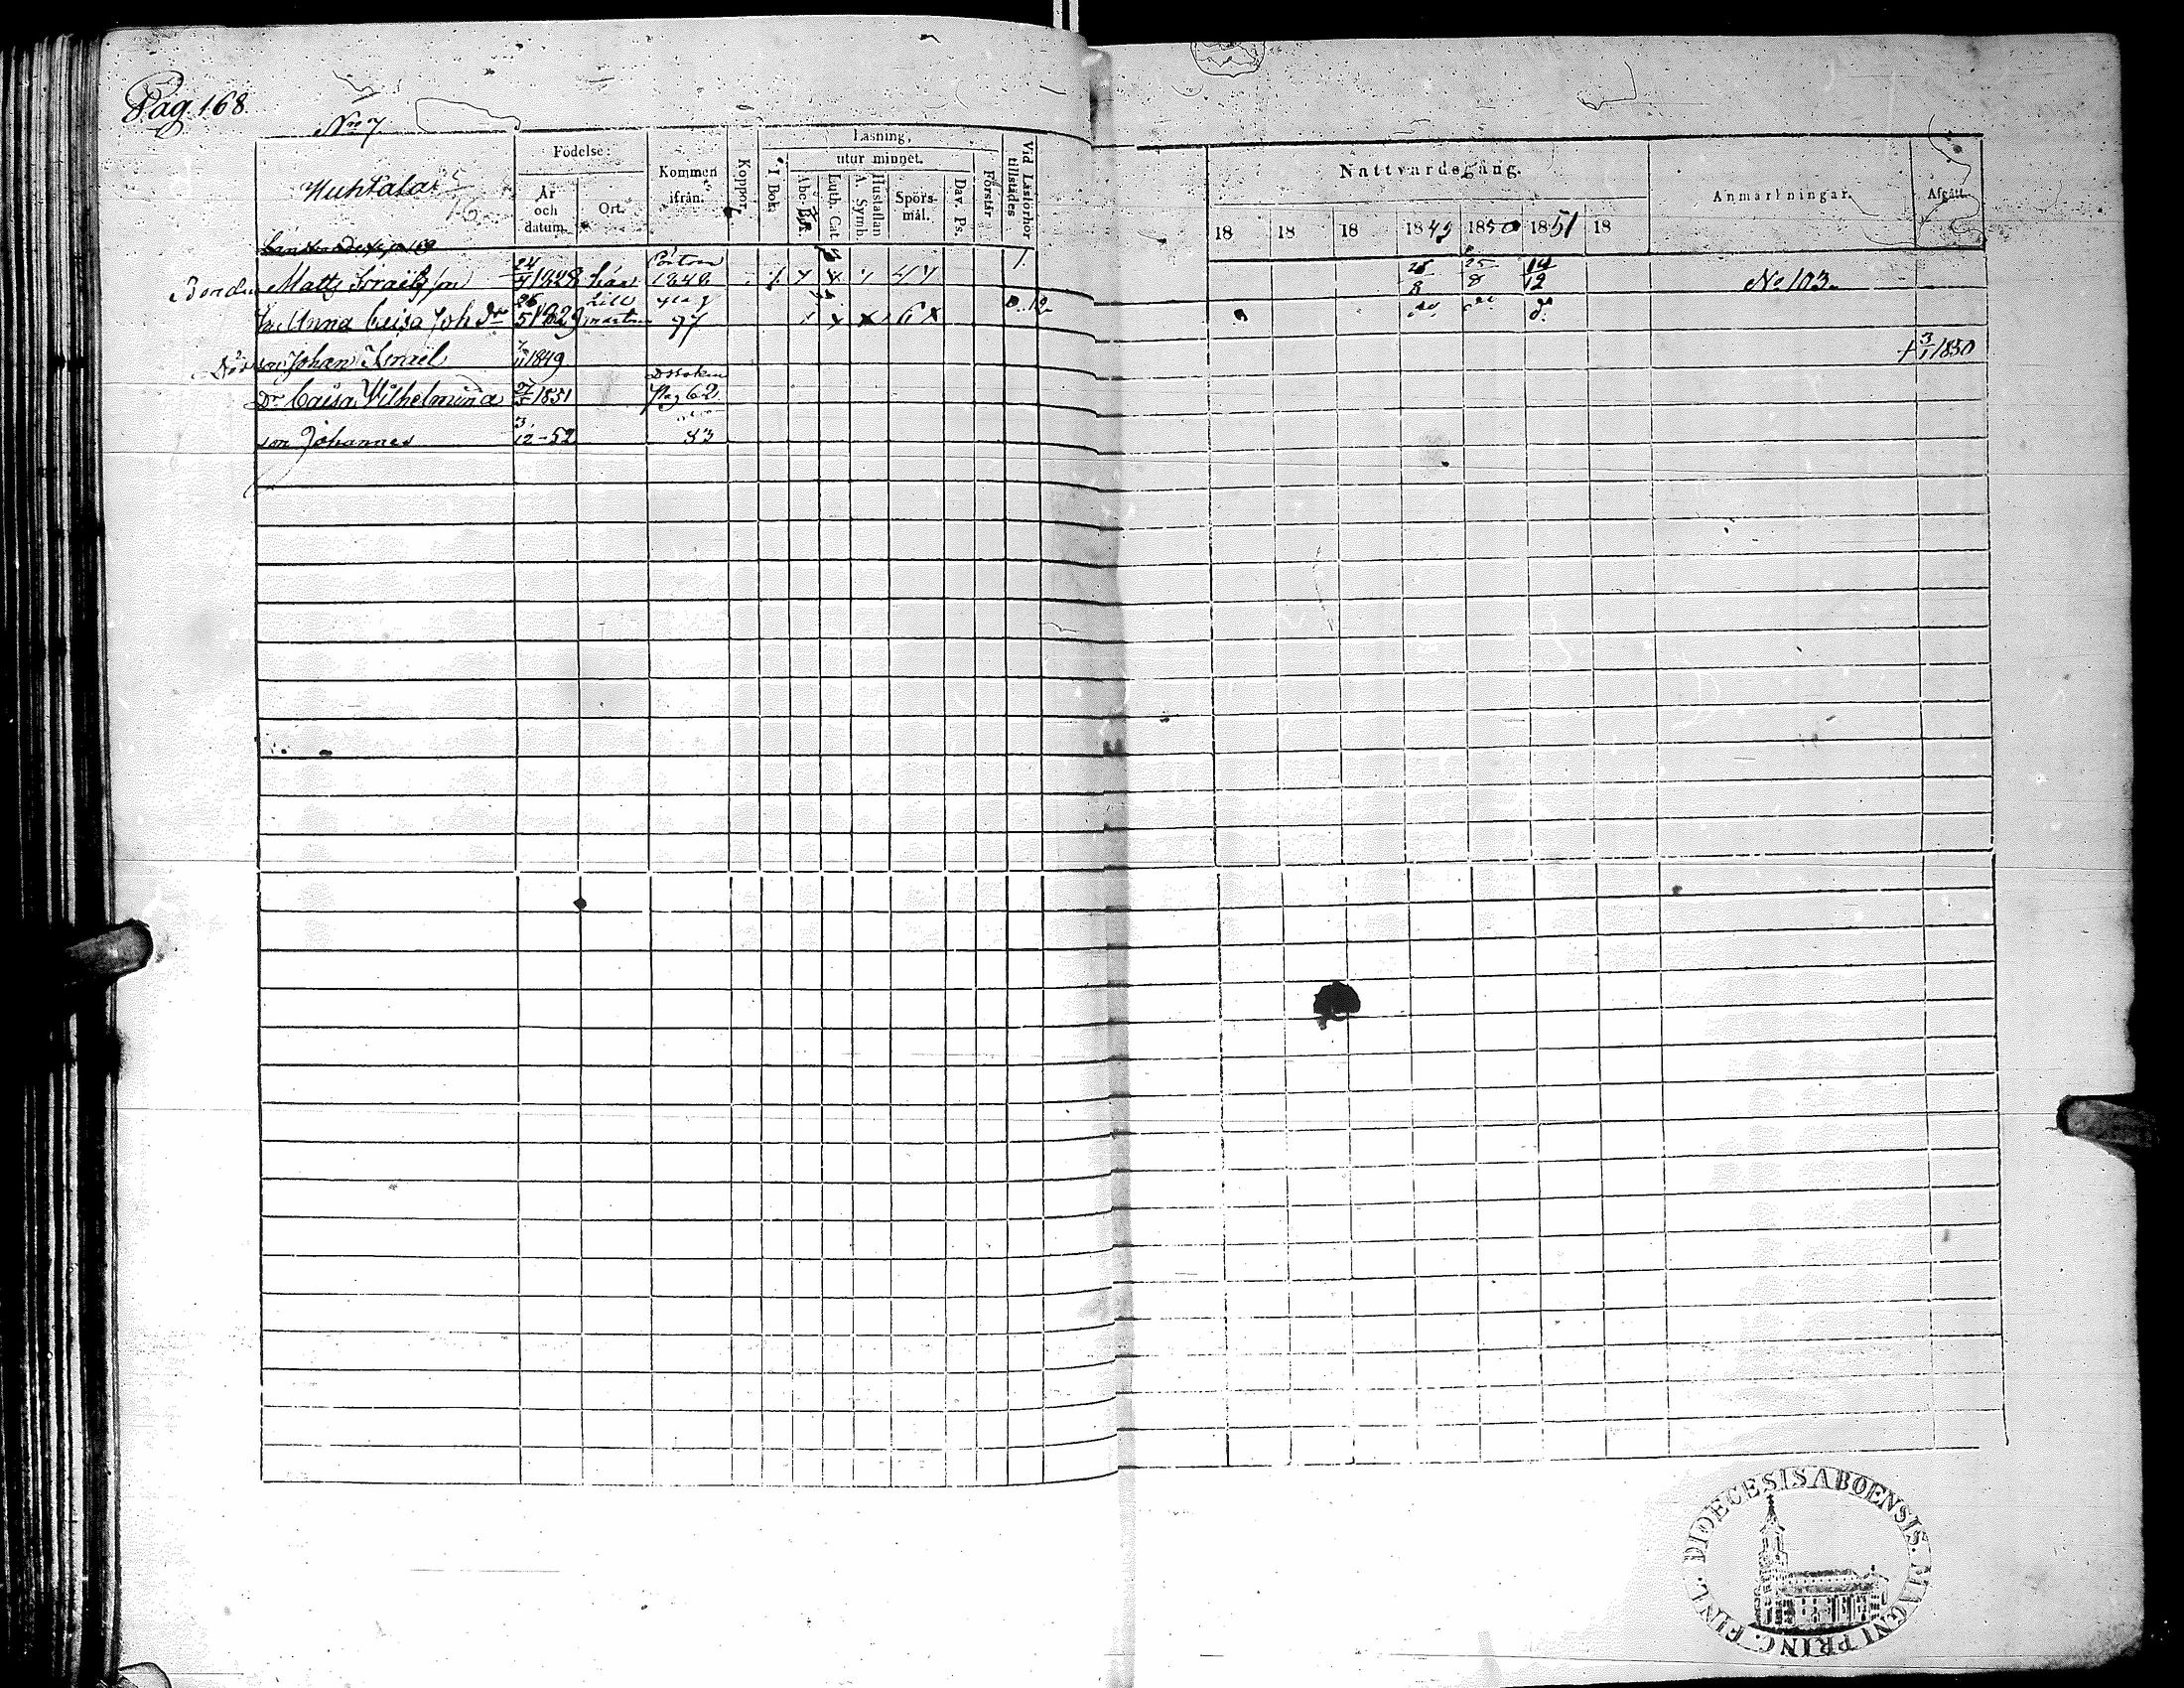 Pag. 168.
No 7
Huhtala 5/16
Födelse:
År och datum.
Ort.
Kommen ifrån.
Koppor.
Läsning,
I Bok.
utur minnet.
Abc-Bok.
Luth. Cat.
Hustaflan A. Symb.
Spörsmål.
Dav. Ps.
Förstår
Vid Läsförhör tillstädes
Nattvardsgång.
18 18 18 1849 1850 1851 18
Anmärkningar.
Afgått.
Bonden Matts Israëlsson 24/4 1828 1848 26/8 25/8 14/12 No 103
Anna Caisa Joh dr 26/5 1829 97 do do do
son Johan Israël 1849 + 3/1 1850
Dr Caisa Wilhelmina 1851 Pag 62
son Johannes 3/12 - 52 83
DIOECESIS ABOENSIS. MAGNI PRINC. FINL.